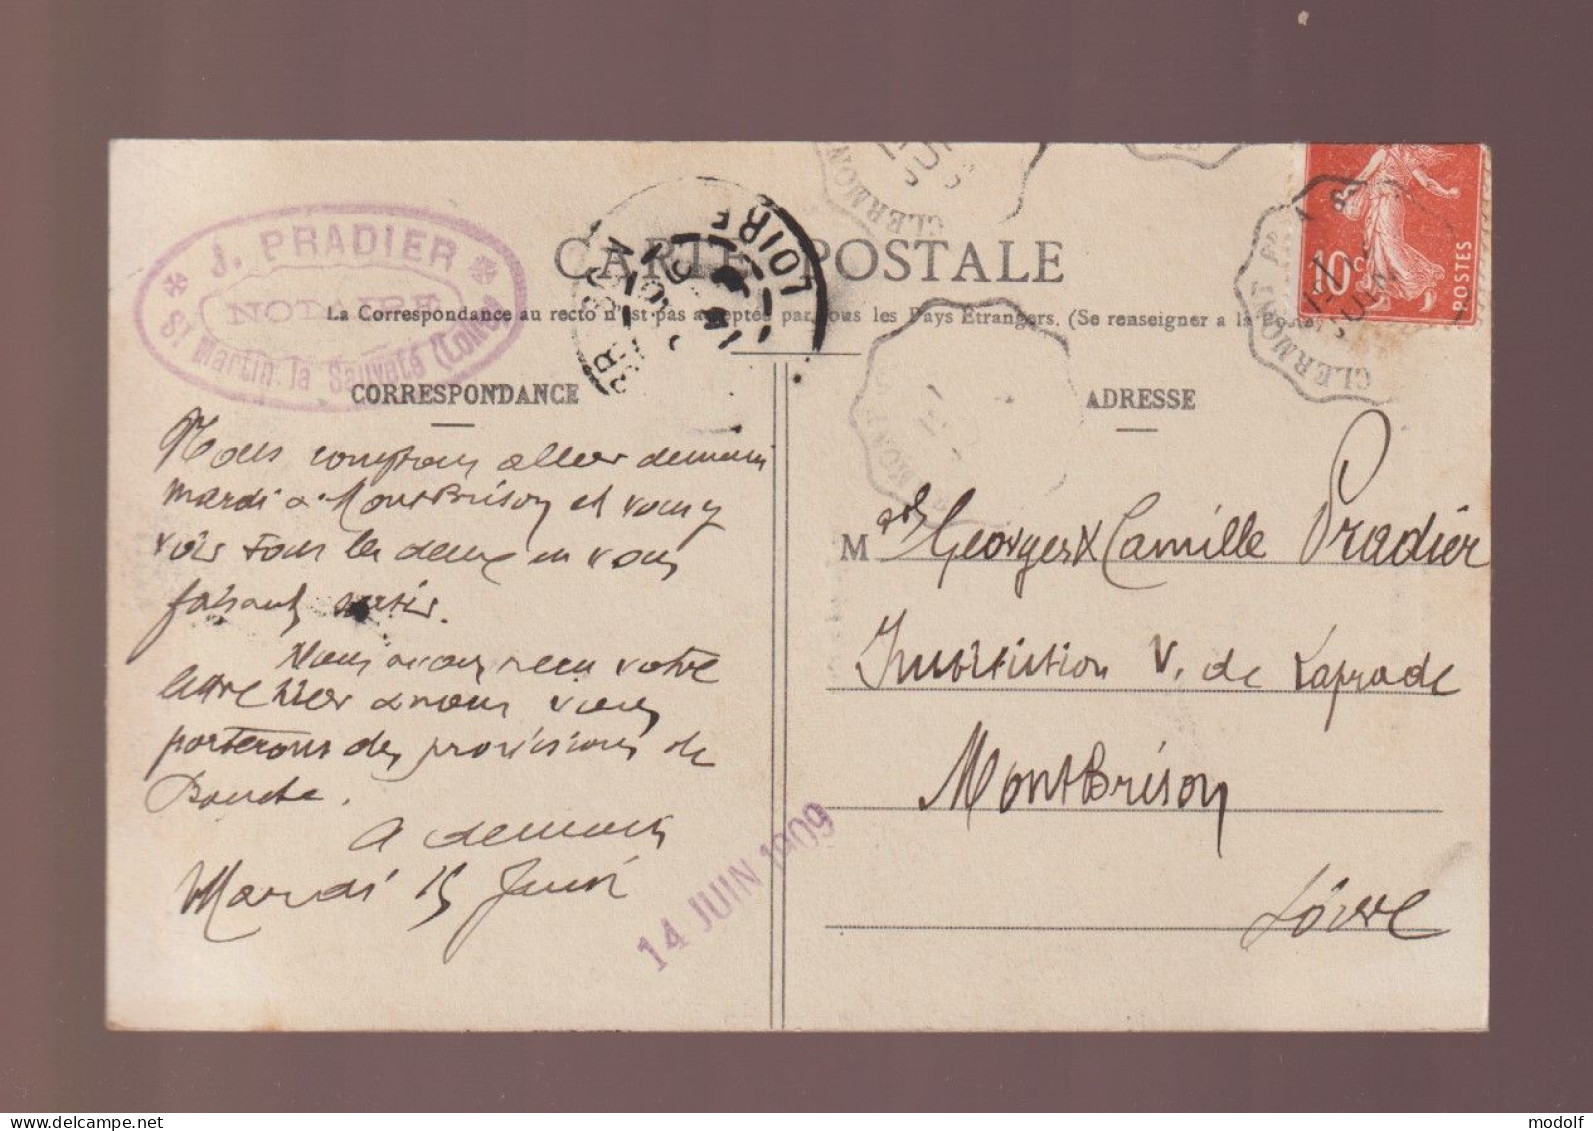 J. PRADIER
NOTAIRE
St Martin-la Sauveté (Loire)
CARTE POSTALE
La Correspondance au recto n'est pas acceptée par tous les Pays Etrangers. (Se renseigner a la Poste
CORRESPONDANCE
ADRESSE
LOIRE
CLERMON
CLERMONT
JUIN
10c
POSTES
Nous comptons aller demain
mardi a MontBrison et vous y
voir tous les deux en vous
faisant sortir.
Nous avons reçu votre
lettre hier & nous vous
porterons des provisions de
bouche.
A demain
Mardi 15 Juin
14 JUIN 1909
M Georges & Camille Pradier
Institution V. de Laprade
MontBrison
Loire
modolf